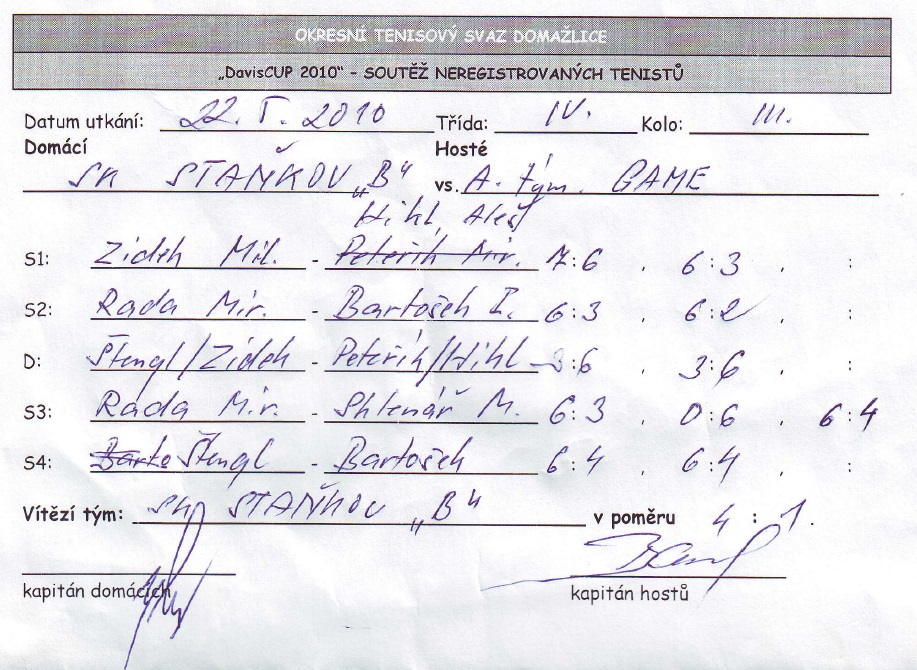 OKRESNÍ TENISOVÝ SVAZ DOMAŽLICE
„DavisCUP 2010“ - SOUTĚŽ NEREGISTROVANÝCH TENISTŮ
Datum utkání: 22. V. 2010 Třída: IV. Kolo: III.
Domácí Hosté
SK STAŇKOV „B“ vs. A. tým. GAME
Hikl, Aleš
S1: Zídek Mil. - Peteřík Mir. 7:6 , 6:3 , :
S2: Rada Mir. - Bartošek I. 6:3 , 6:2 , :
D: Štengl/Zídek - Peteřík/Hikl 3:6 , 3:6 , :
S3: Rada Mir. - Sklenář M. 6:3 , 0:6 , 6:4
S4: Barto Štengl - Bartošek 6:4 , 6:4 , :
Vítězí tým: SK STAŇKOV „B“ v poměru 4 : 1.
kapitán domácích kapitán hostů